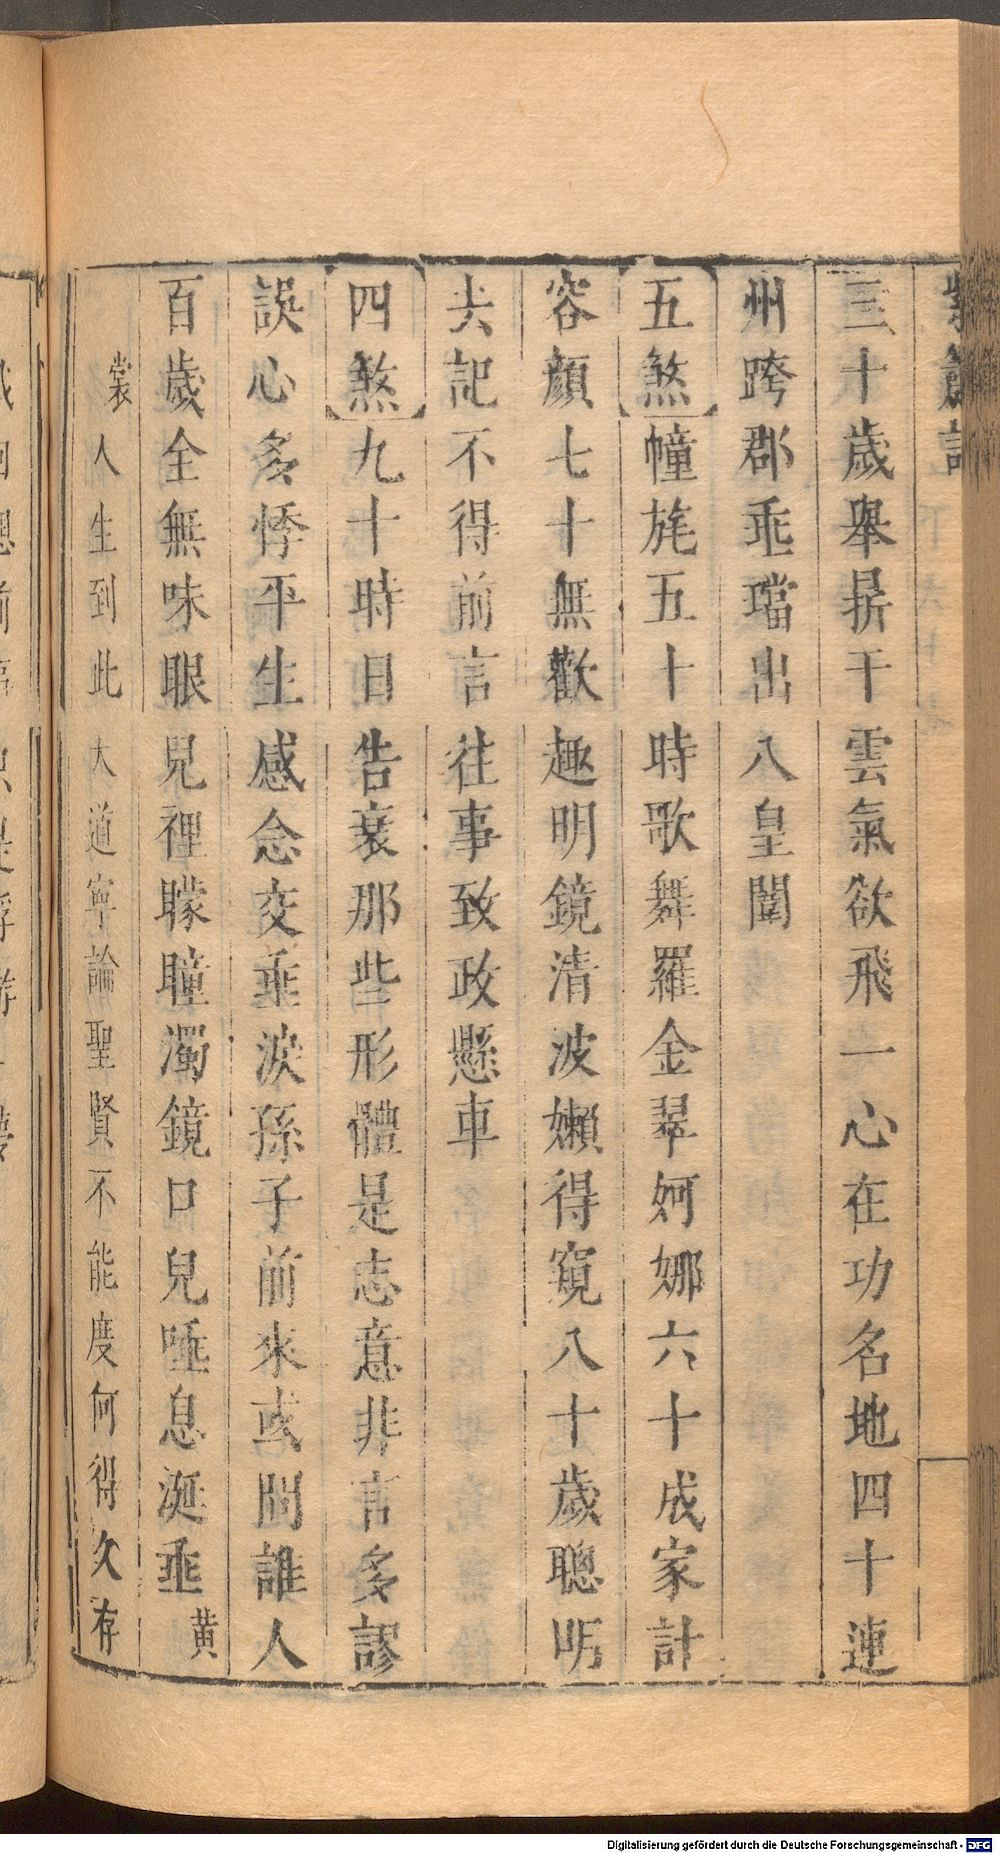 三十歲舉掑干雲氣欲飛一心在功名地四十連
州跨郡乖璫出八皇闈
五煞幢旄五十時歌舞羅金翠妸娜六十成家計
容顏七十無歡趣明鏡清波嬾得窺八十歲聰明
去記不得前言往事致政懸車
四煞九十時日告衰那些形體是志意非言多謬
誤心多悸平生感念交垂淚孫子前來或問誰人
百歲全無味眼見裡矇瞳濁鏡口兒唾息涎垂黃
裳 人生到此大道寧論聖賢不能度何得久存
Digitalisierung gefördert durch die Deutsche Forschungsgemeinschaft - DFG